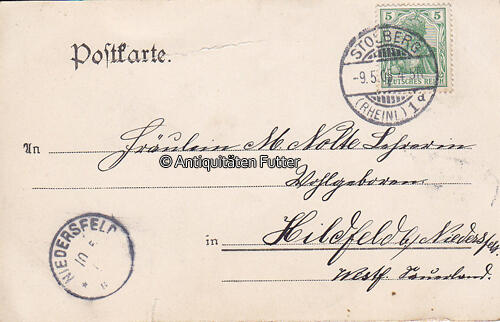 Postkarte.
5 5
DEUTSCHES REICH
STOLBERG
-9.5.0
(RHEINL.) 1d
An Fräulein M. Nolte Lehrerin
© Antiquitäten Futter
Wohlgeboren
in Hildfeld b/ Niedersfeld.
Westf. Sauerland.
NIEDERSFELD
10 5